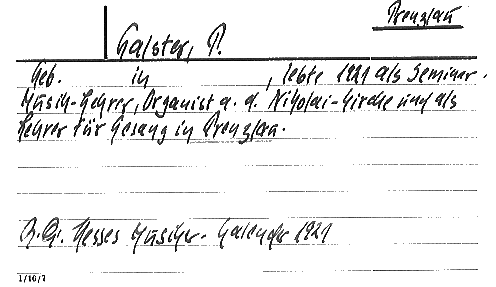 Prenzlau
Galster, P.
Geb. in , lebte 1921 als Seminar-
Musik-Lehrer, Organist a. d. Nikolai-Kirche und als
Lehrer für Gesang in Prenzlau.
Hesses Musiker-Kalender 1921
1/16/7